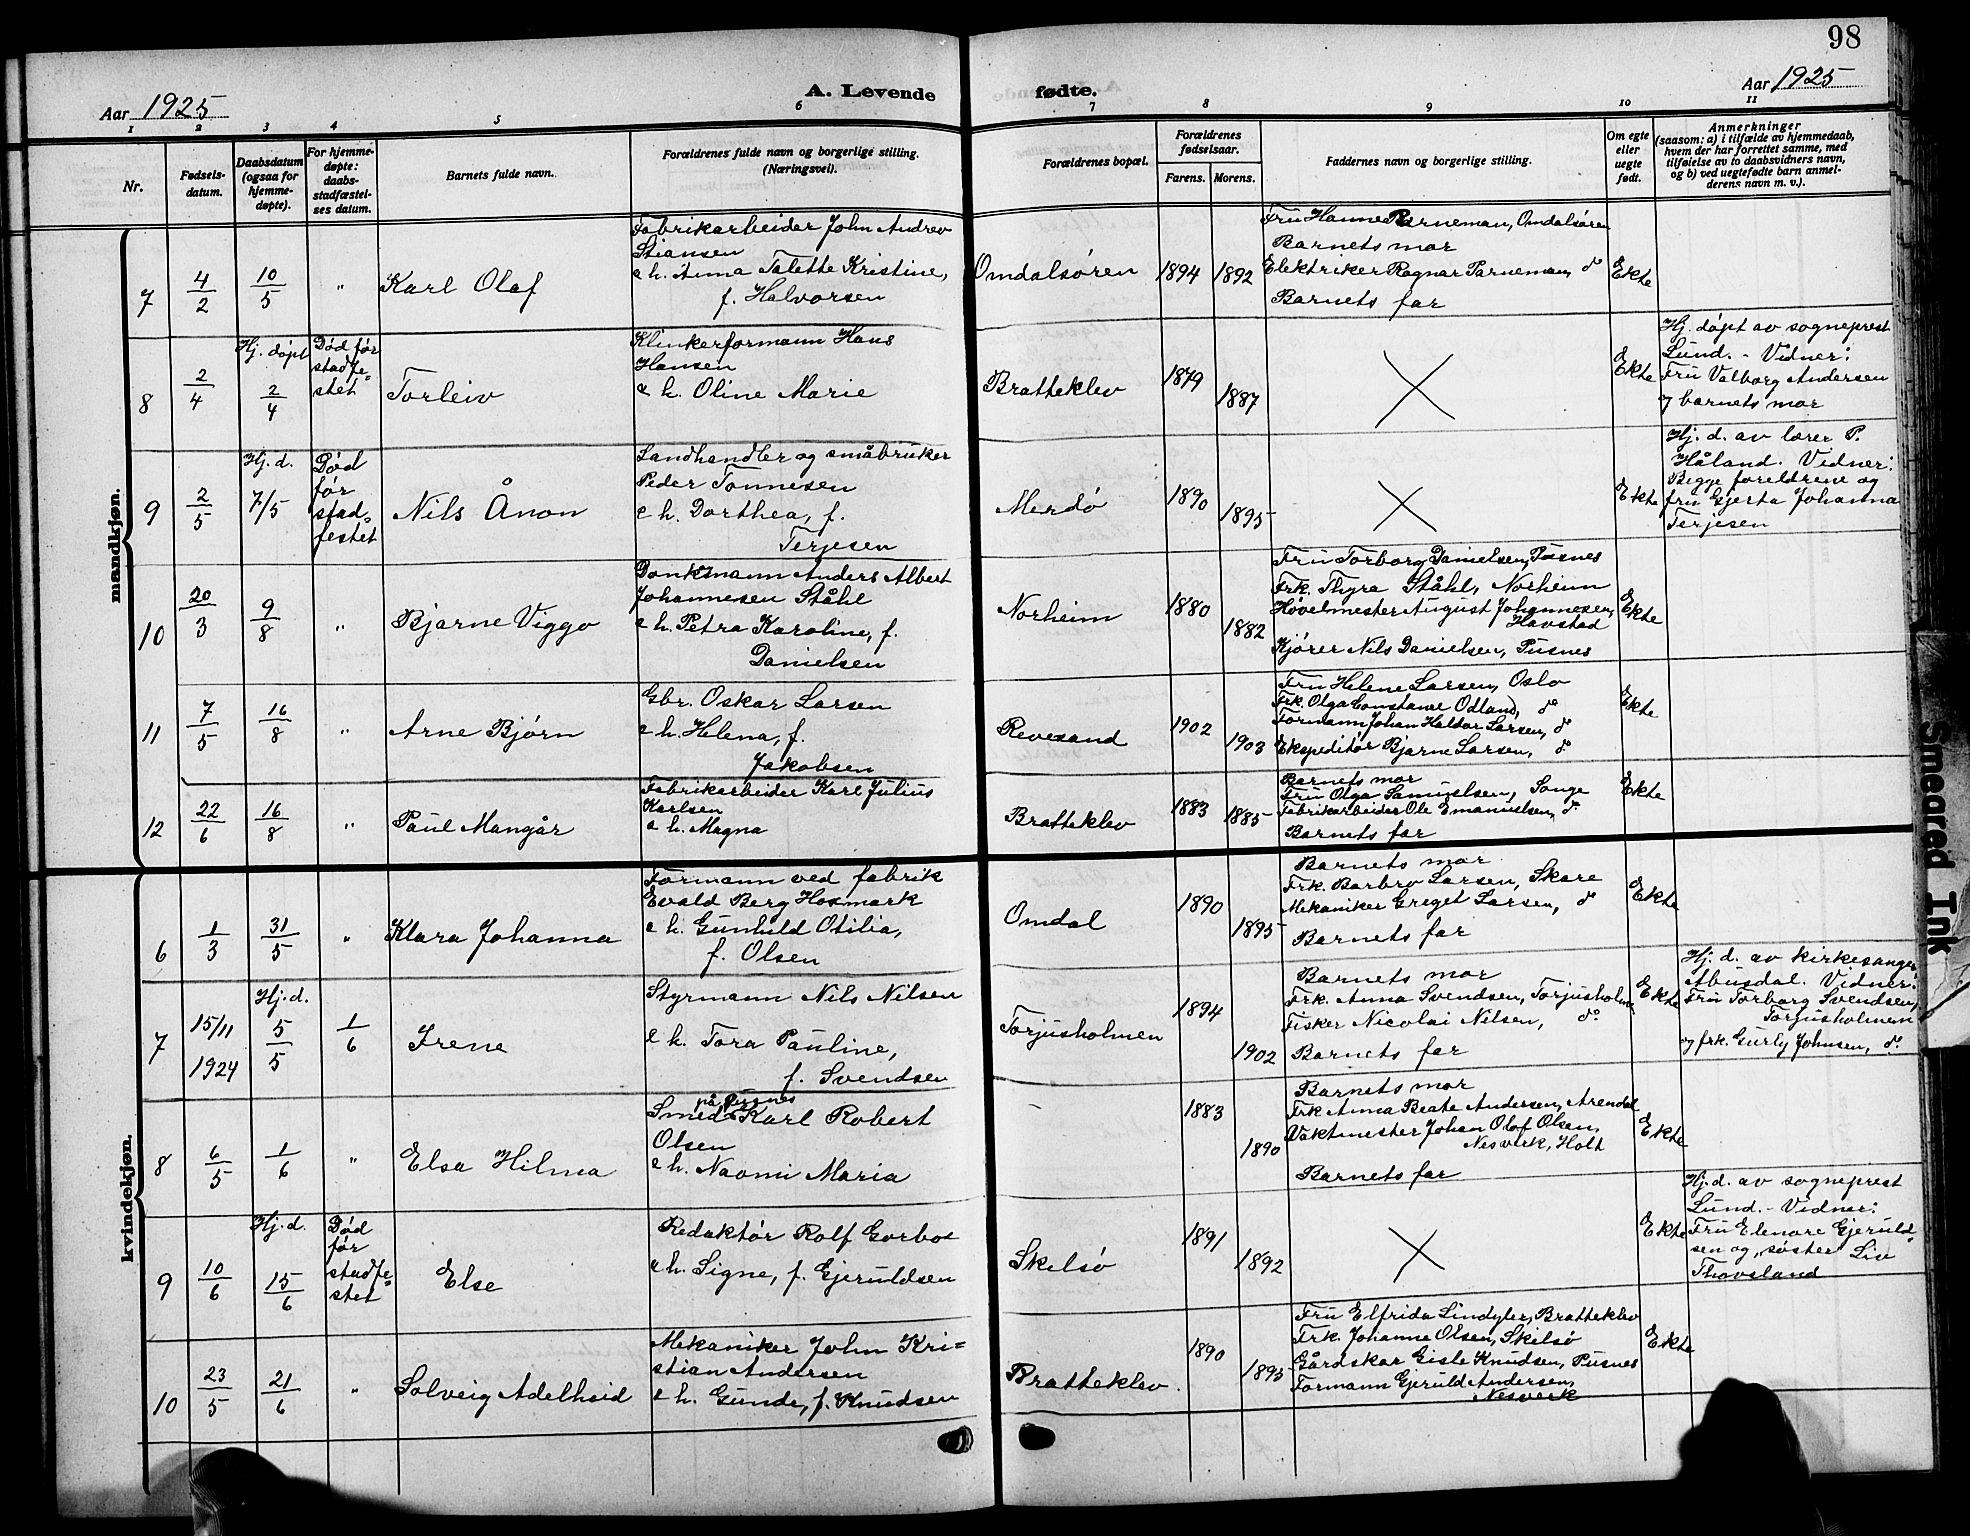 98
Aar 1925
A. Levende
fødte.
Aar 1925
1 2 3 4 5 6 7 8 9 10 11
Nr.
Fødsels-
datum.
Daabsdatum
(ogsaa for
hjemme-
døpte).
For hjemme-
døpte:
daabs-
stadfæstel-
ses datum.
Barnets fulde navn.
Forældrenes fulde navn og borgerlige stilling.
(Næringsvei).
Forældrenes bopæl.
Forældrenes
fødselsaar.
Farens. Morens.
Faddernes navn og borgerlige stilling.
Om egte
eller
uegte
født.
Anmerkninger
(saasom: a) i tilfælde av hjemmedaab,
hvem der har forrettet samme, med
tilføielse av to daabsvidners navn,
og b) ved uegtefødte barn anmel-
derens navn m. v.).
mandkjøn.
7
4/2
10/5
"
Karl Olaf
Fabrikarbeider John Andrev
Stiansen
e h. Anna Talette Kristine,
f. Halvorsen
Omdalsøren
1894
1892
Fru Hanne Parneman, Omdalsøren
Barnets mor
Elektriker Ragnar Parneman, do
Barnets far
Ekte
8
2/4
Hj. døpt
2/4
Død før
stadfe=
stet
Torleiv
Klinkerformann Hans
Hansen
e h. Oline Marie
Bratteklev
1879
1887
Ekte
Hj. døpt av sogneprest
Lund. - Vidner:
Fru Valborg Andersen
og barnets mor
9
2/5
Hj. d.
7/5
Død
før
stad=
festet
Nils Ånon
Landhandler og småbruker
Peder Tønnesen
e h. Dorthea, f.
Terjesen
Merdø
1890
1895
Ekte
Hj. d. av lærer P.
Håland. Vidner:
Begge foreldrene og
fru Gjerta Johanna
Terjesen
10
20/3
9/8
"
Bjarne Viggo
Donkemann Anders Albert
Johannesen Ståhl
e h. Petra Karoline, f.
Danielsen
Norheim
1880
1882
Fru Torborg Danielsen, Pusnes
Frk. Thyra Ståhl, Norheim
Høvelmester August Johannesen,
Havstad
Kjører Nils Danielsen, Pusnes
Ekte
11
7/5
16/8
"
Arne Bjørn
Gbr. Oskar Larsen
e h. Helena, f.
Jakobsen
Revesand
1902
1903
Fru Helene Larsen, Oslo
Frk. Olga Constanse Odland, do
Formann Johan Haldor Larsen, do
Ekspeditør Bjarne Larsen, do
Ekte
12
22/6
16/8
"
Paul Mangår
Fabrikarbeider Karl Julius
Karlsen
e h. Magna
Bratteklev
1883
1885
Barnets mor
Fru Olga Samuelsen, Songe
Fabrikarbeider Ole Emanuelsen, do
Barnets far
Ekte
kvindekjøn.
6
1/3
31/5
"
Klara Johanna
Formann ved fabrik
Evald Berg Hosmark
e h. Gunhild Otilia,
f. Olsen
Omdal
1890
1895
Barnets mor
Frk. Barbro Larsen, Skare
Mekaniker Greget Larsen, do
Barnets far
Ekte
7
15/11
1924
Hj. d.
5/5
1/6
Irene
Styrmann Nils Nilsen
e h. Tora Pauline,
f. Svendsen
Torjusholmen
1894
1902
Barnets mor
Frk. Anna Svendsen, Torjusholm
Fisker Nicolai Nilsen, do
Barnets far
Ekte
Hj. d. av kirkesanger
Abusdal. Vidner:
Fru Torborg Svendsen,
Torjusholmen
og frk. Gurly Johnsen, do
8
6/5
1/6
"
Elsa Hilma
på Pusnes
Smed Karl Robert
Olsen
e h. Naomi Maria
1883
1890
Barnets mor
Frk Anna Beate Andersen, Arendal
Vaktmester Johan Olof Olsen,
Nesverk, Holt
Barnets far
Ekte
9
10/6
Hj. d.
15/6
Død
før
stadfe=
stet
Else
Redaktør Rolf Gorboe
e h. Signe, f. Gjeruldsen
Skilsø
1891
1892
Ekte
Hj. d. av sogneprest
Lund. - Vidner:
Fru Elenore Gjeruld=
sen og søster Liv
Thovsland
10
23/5
21/6
"
Solveig Adelheid
Mekaniker John Kri=
stian Andersen
e h. Gunda, f. Knudsen
Bratteklev.
1890
1895
Fru Elfrida Lindyler, Bratteklev
Frk. Johanne Olsen, Skilsø
Gårdskar Gisle Knudsen, Pusnes
Formann Gjeruld Andersen,
Nesverk
Ekte
Smeared Ink